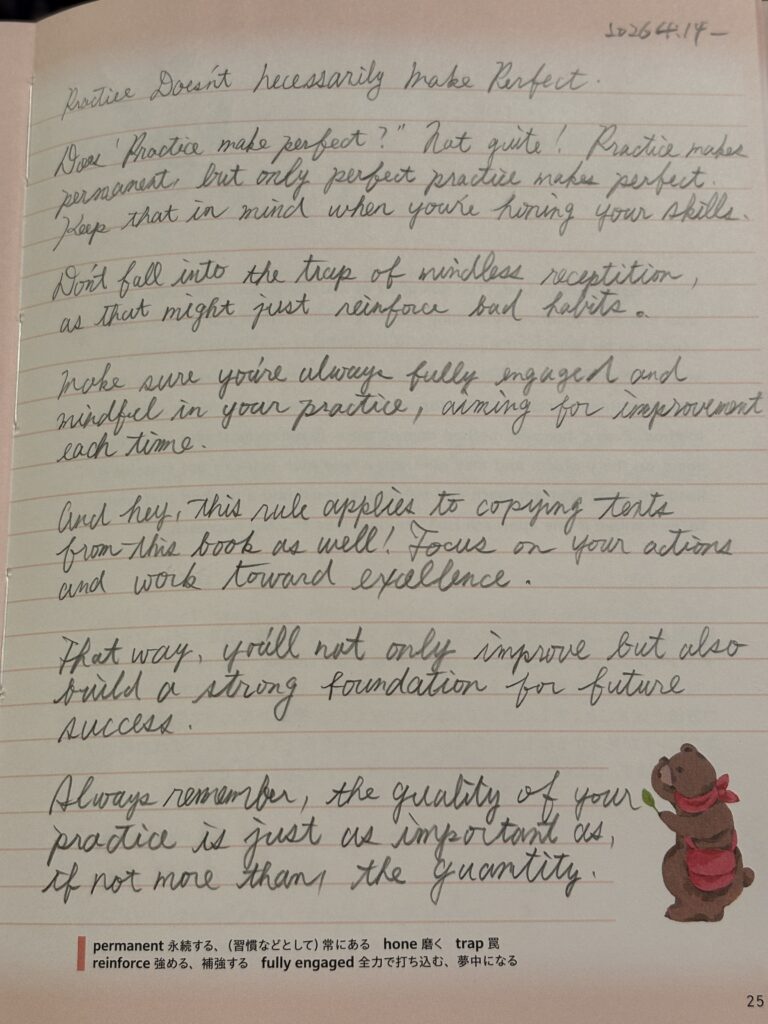 2026 4.14-
Practice Doesn't necessarily Make Perfect.
Does 'Practice make perfect?" Not quite! Practice makes
permanent, but only perfect practice makes perfect.
Keep that in mind when you're honing your skills.
Don't fall into the trap of mindless receptition,
as that might just reinforce bad habits。
Make sure you're always fully engaged and
mindful in your practice, aiming for improvement
each time.
And hey, this rule applies to copying texts
from this book as well! Focus on your actions
and work toward excellence.
That way, you'll not only improve but also
build a strong foundation for future
success.
Always remember, the quality of your
practice is just as important as,
if not more than, the quantity.
permanent 永続する、(習慣などとして) 常にある hone 磨く trap 罠
reinforce 強める、補強する fully engaged 全力で打ち込む、夢中になる
25